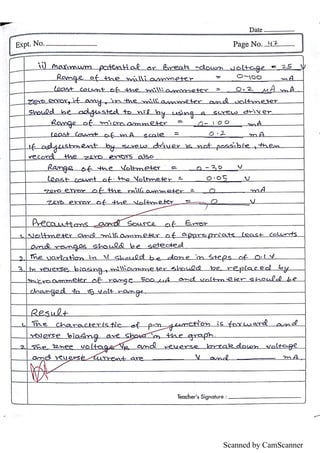 Date
Expt. No.
Page No. 47
ii) Maximum potential or Break-down voltage = 25 V
Range of the milli ammeter = 0-100 mA
Least count of the milliammeter = 0.2 mA
zero error, if any, in the milli ammeter and voltmeter
should be adjusted to nil by using a screw driver
Range of micro ammeter = 0-100 mA
least count of mA scale = 0.2 mA
if adjustment by screw driver is not possible, then
record the zero errors also
Range of the voltmeter = 0-20 V
Least count of the Voltmeter = 0.05 V
zero error of the milli ammeter = 0 mA
zero error of the voltmeter = 0 V
Precautions and Source of Error
1. Voltmeter and milli ammeter of appropriate least counts
and ranges should be selected
2. The variation in V should be done in steps of 0.1 V
3. In reverse biasing, milliammeter should be replaced by
microammeter of range 500 μA and voltmeter should be
changed to 15 volt range.
Result
1. The characteristic of p-n junction is forward and
reverse biasing are show in the graph.
2. The Knee voltage VR and reverse breakdown voltage
and reverse current are V and mA.
Teacher's Signature :
Scanned by CamScanner